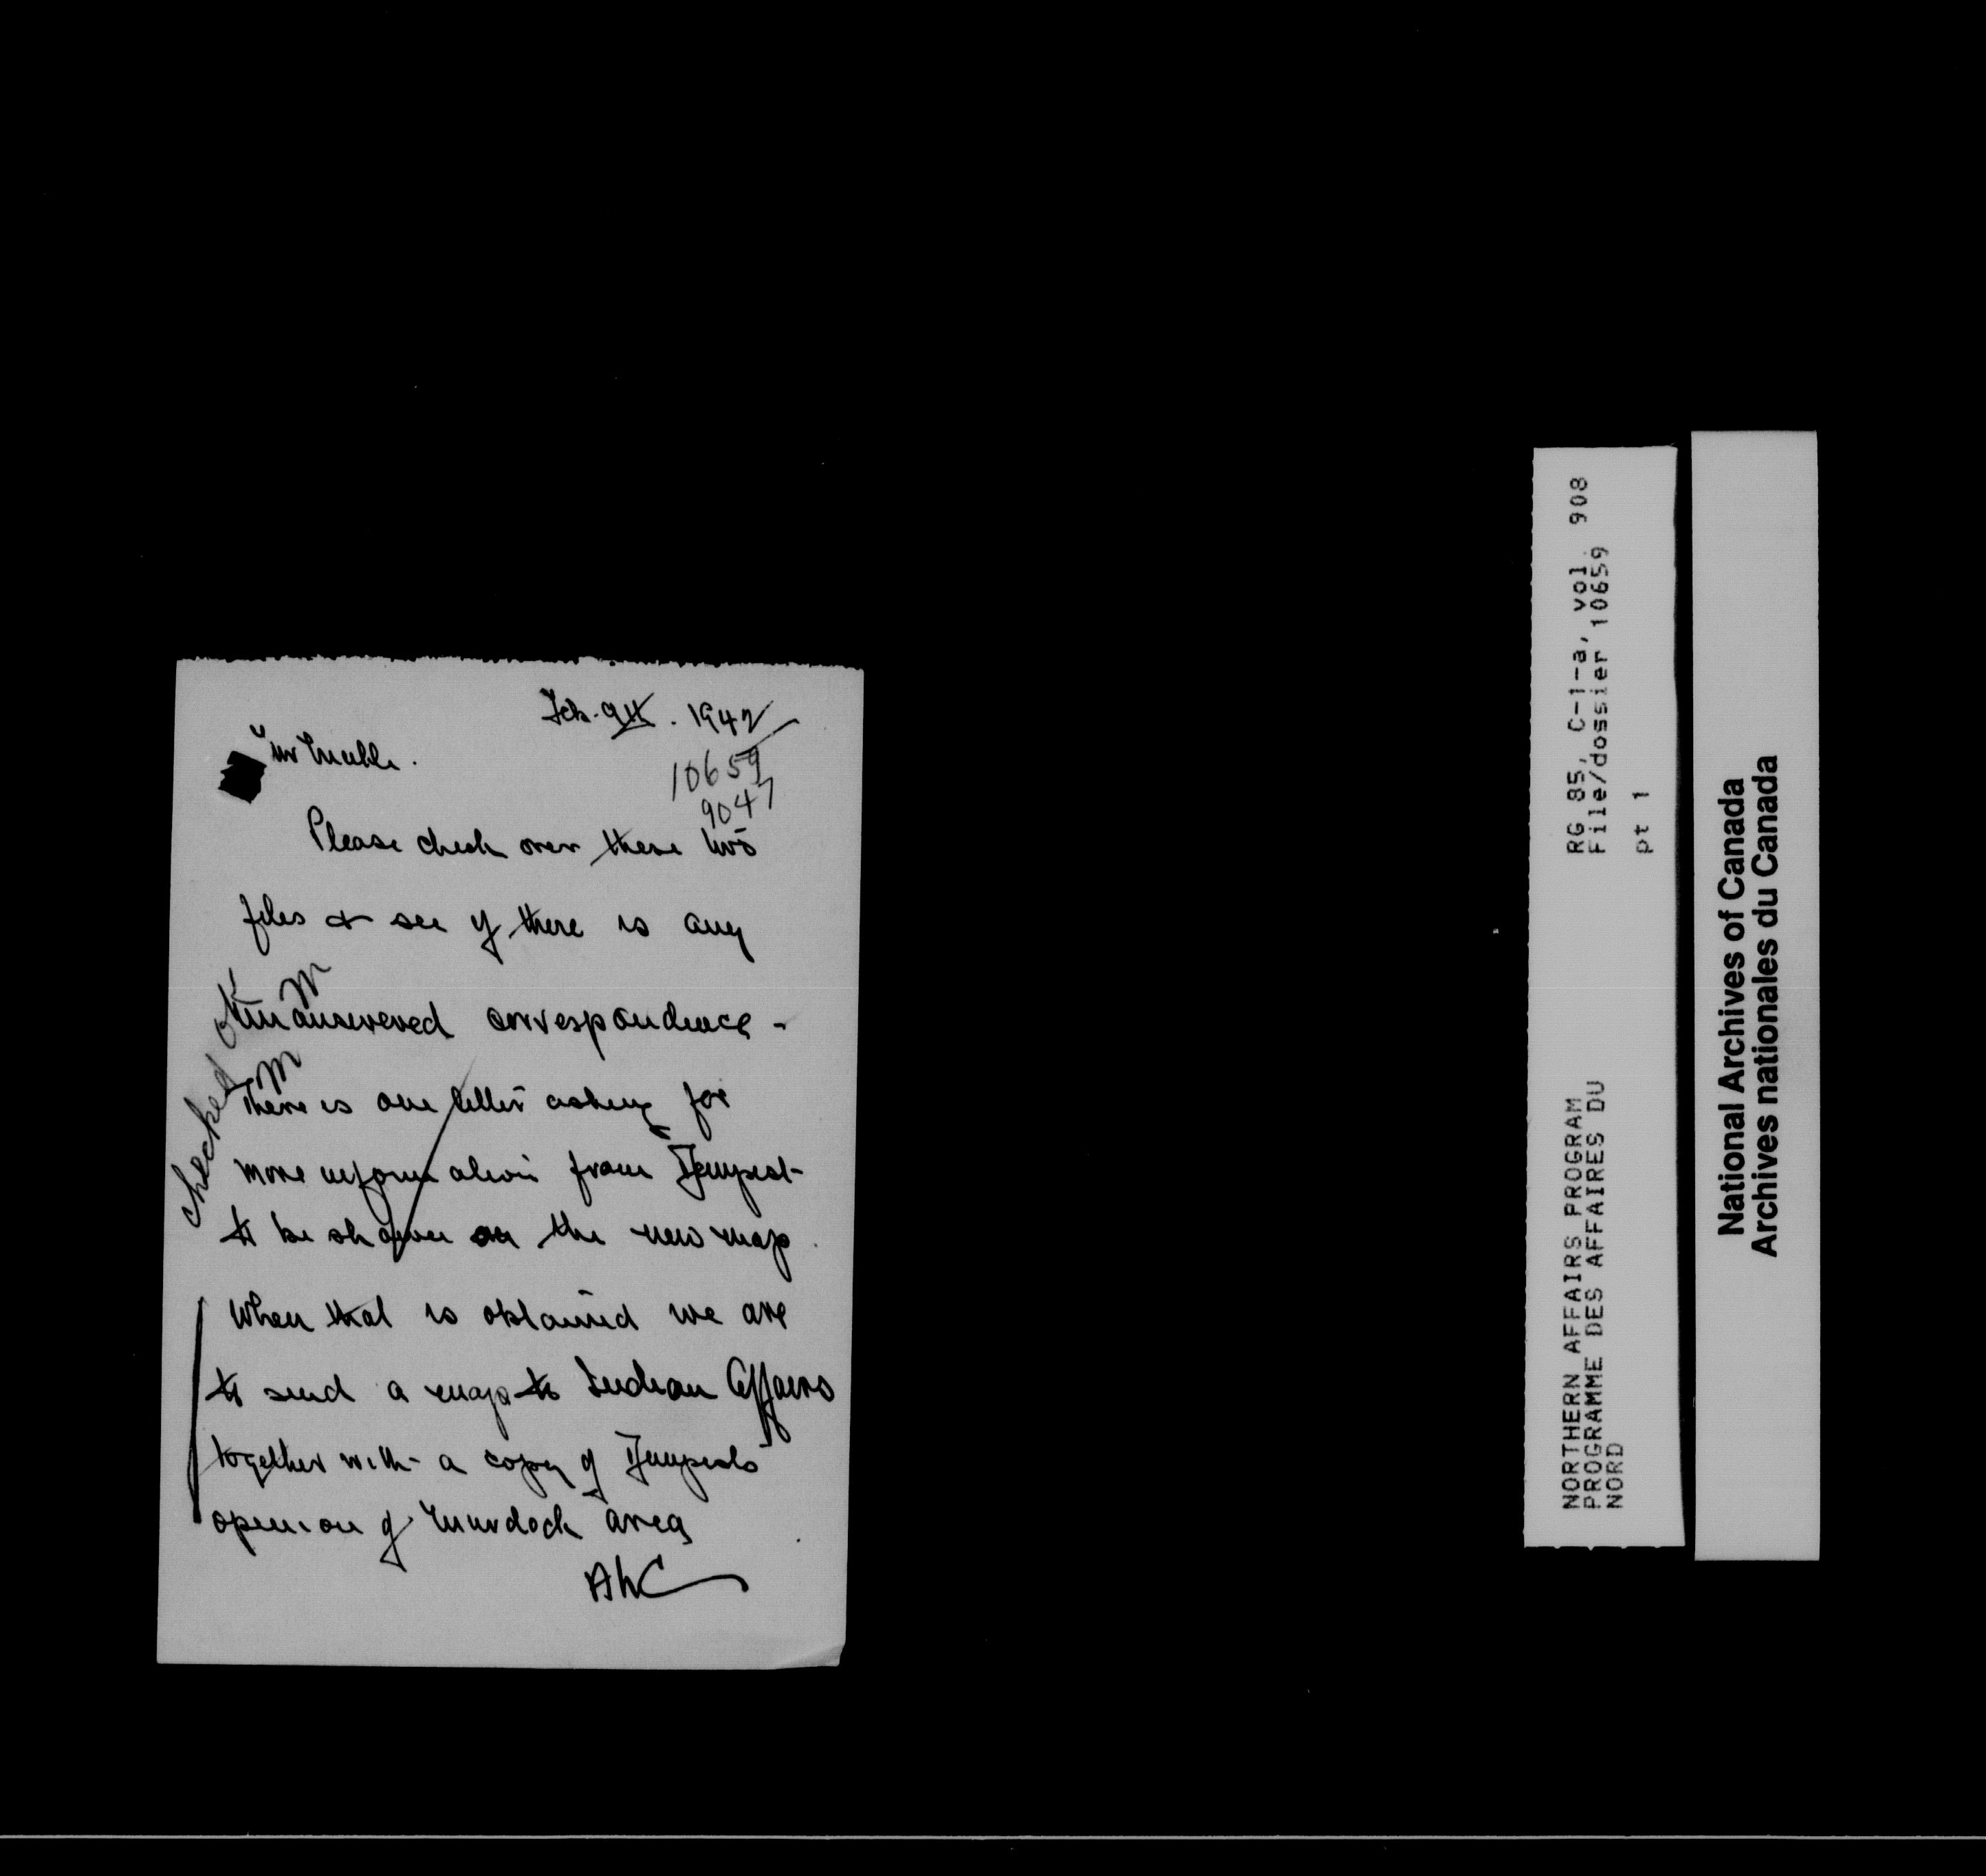 Feb. 9th. 1942
10659
9047
Please check over these two
files & see if there is any
unanswered correspondence -
There is one letter asking for
more information from Tempest
to be shown on the new map.
When that is obtained we are
to send a map to Indian Affairs
together with a copy of Tempests
opinion of Murdock area
AhC
checked ok
RG 85, C-1-a, vol. 908
File/dossier 10659
pt 1
NORTHERN AFFAIRS PROGRAM
PROGRAMME DES AFFAIRES DU
NORD
National Archives of Canada
Archives nationales du Canada